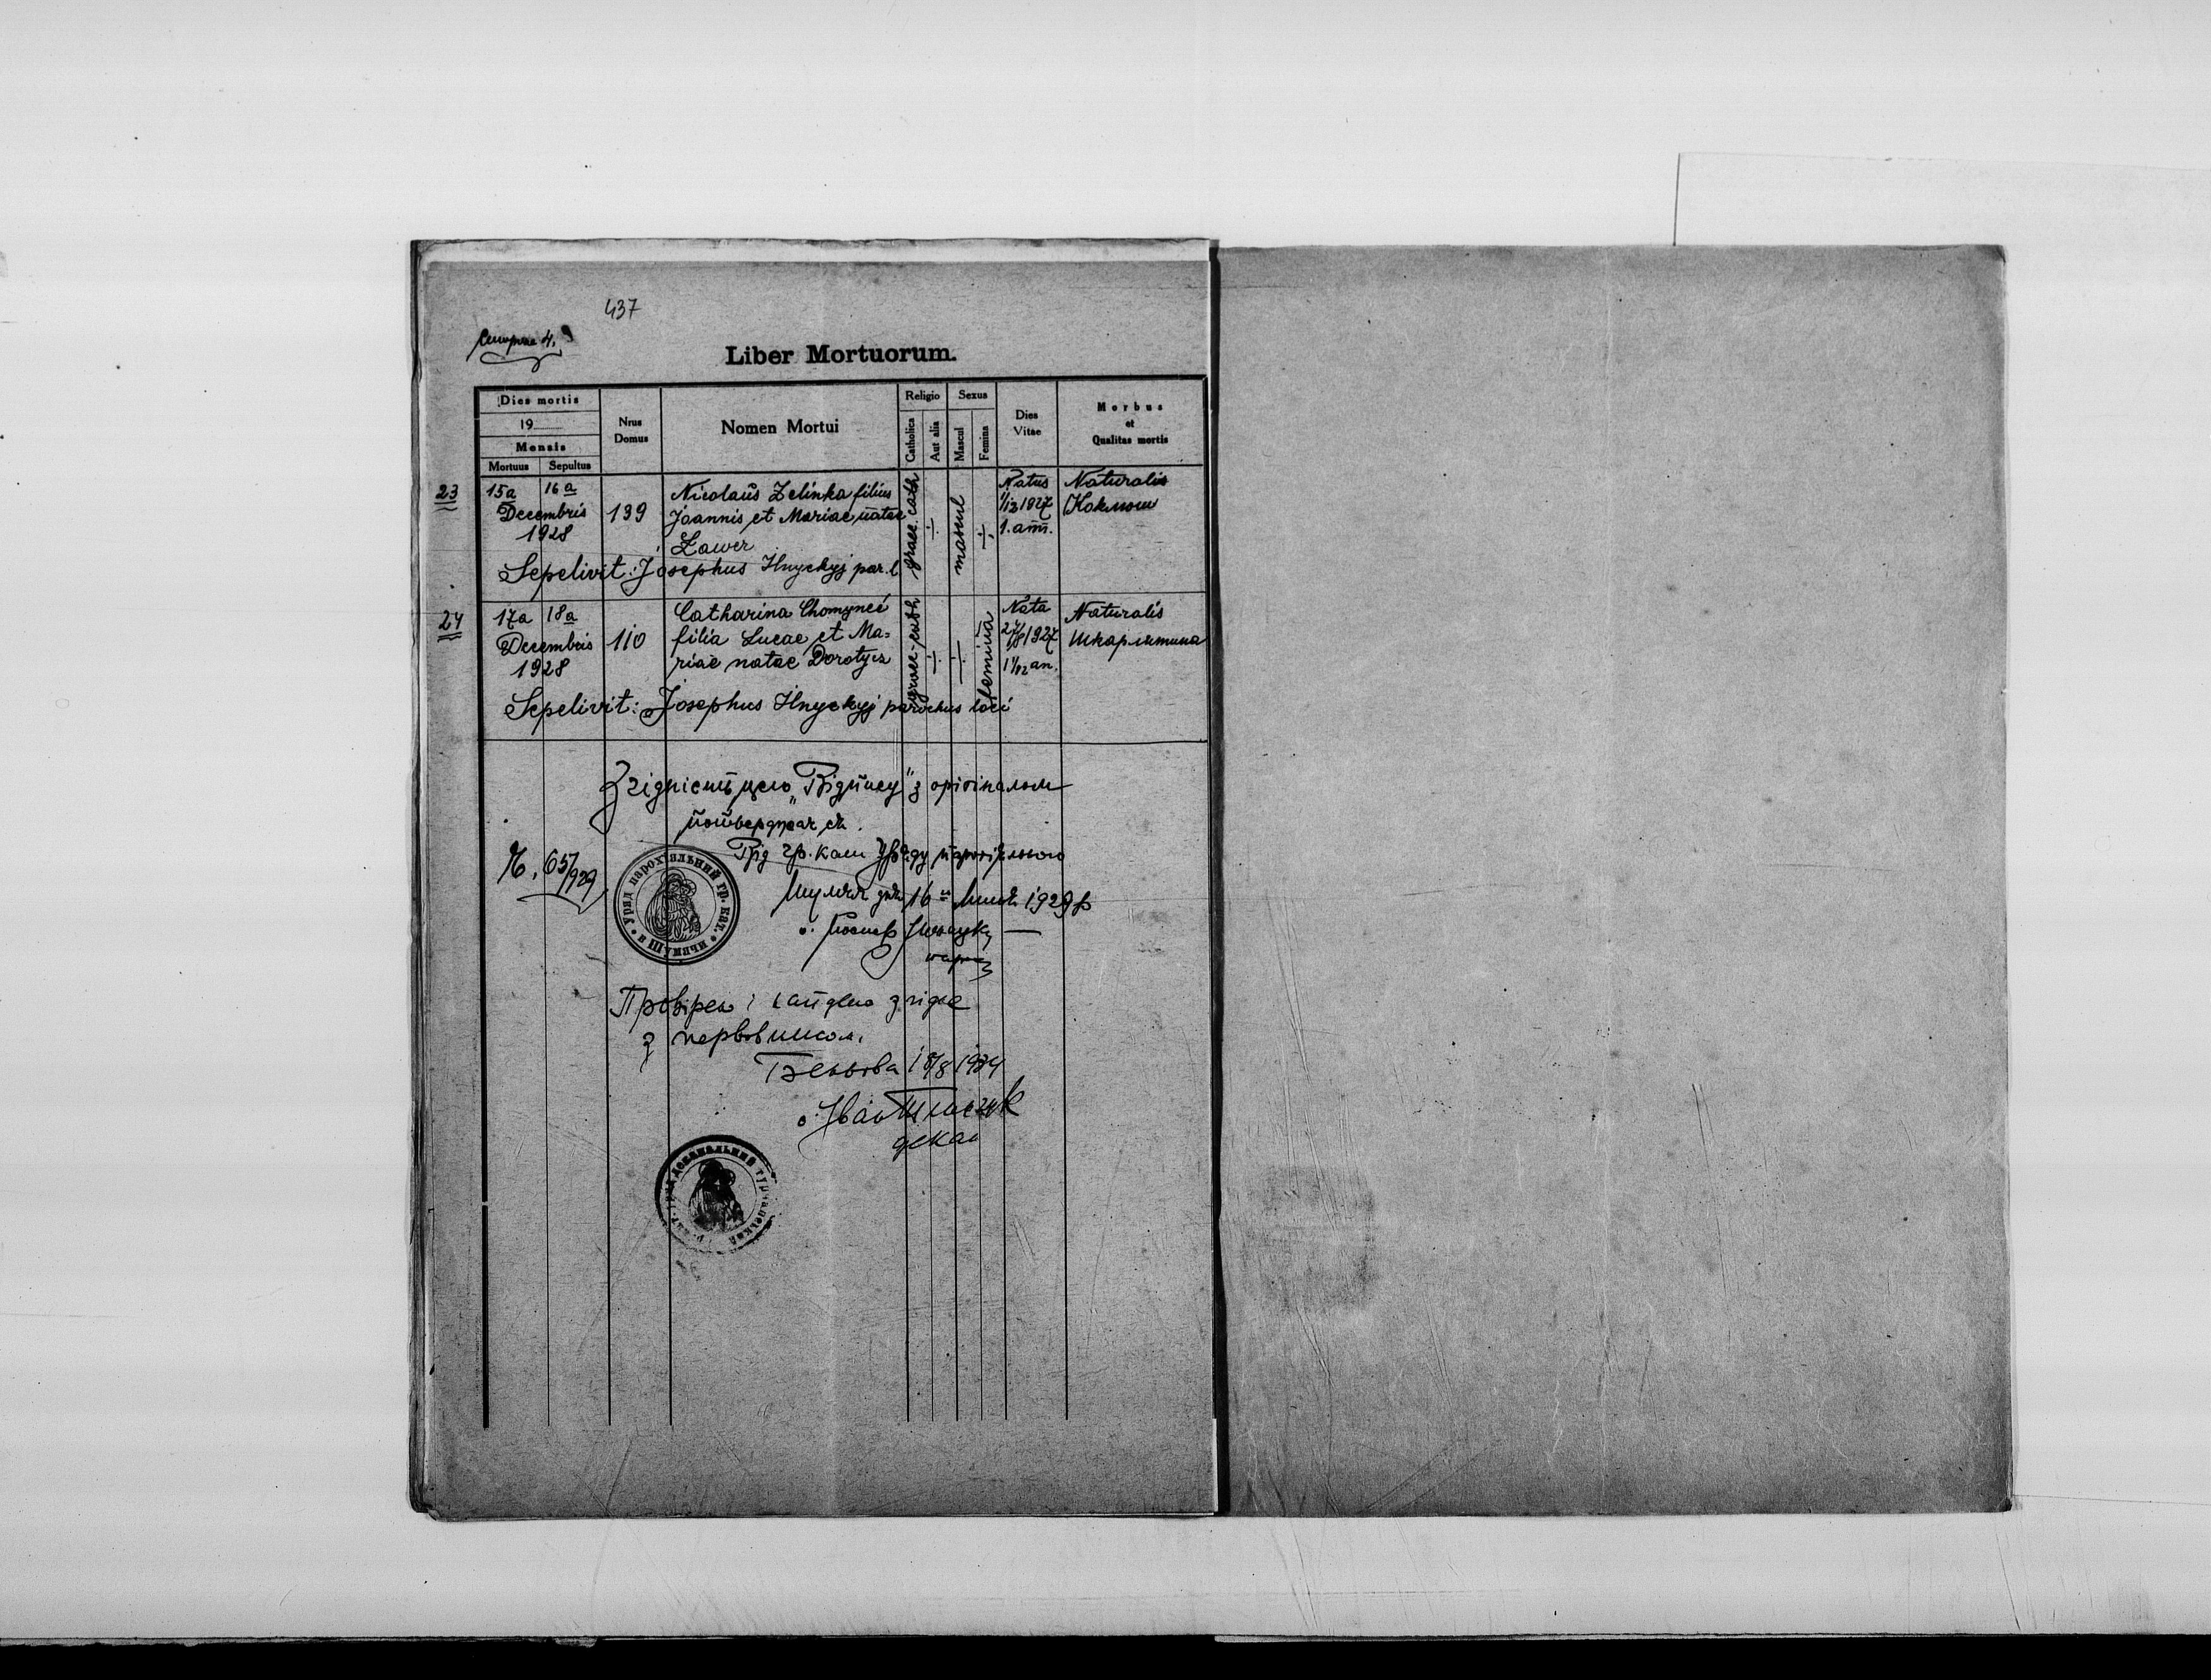 437
4.
Liber Mortuorum.
Dies mortis
19
Mensis
Mortuus Sepultus
Nrus Domus
Nomen Mortui
Religio
Catholica
Aut alia
Sexus
Mascul
Femina
Dies Vitae
Morbus
et
Qualitas mortis
23
15a 16a
Decembris
1928
139
Nicolaus Zelinka filius
Joannis et Mariae natae
Lawer
graec. cath
÷
mascul
÷
Natus
1/12 1927
1. ann.
Naturalis
Коклюш
Sepelivit: Josephus Ilnyckyj par. l
24
17a 18a
Decembris
1928
110
Catharina Chomyncé
filia Lucae et Ma=
riae natae Dorotycz
graec. cath
÷
÷
femina
Nata
1927
1 1/12 an.
Naturalis
Шкарлятина
Sepelivit: Josephus Ilnyckyj parochus loci
Згідність цего „Відпису" з оріґіналом
потверджає ся.
Ч. 65/929
Від гр. кат Уряду парохіяльного
16 1929 р
о. Йосиф
Уряд парохіяльний гр. кат.
Провірено і найдено згідне
з первописом.
18/8 1934
о. Іван
декан
деканальний турчанський